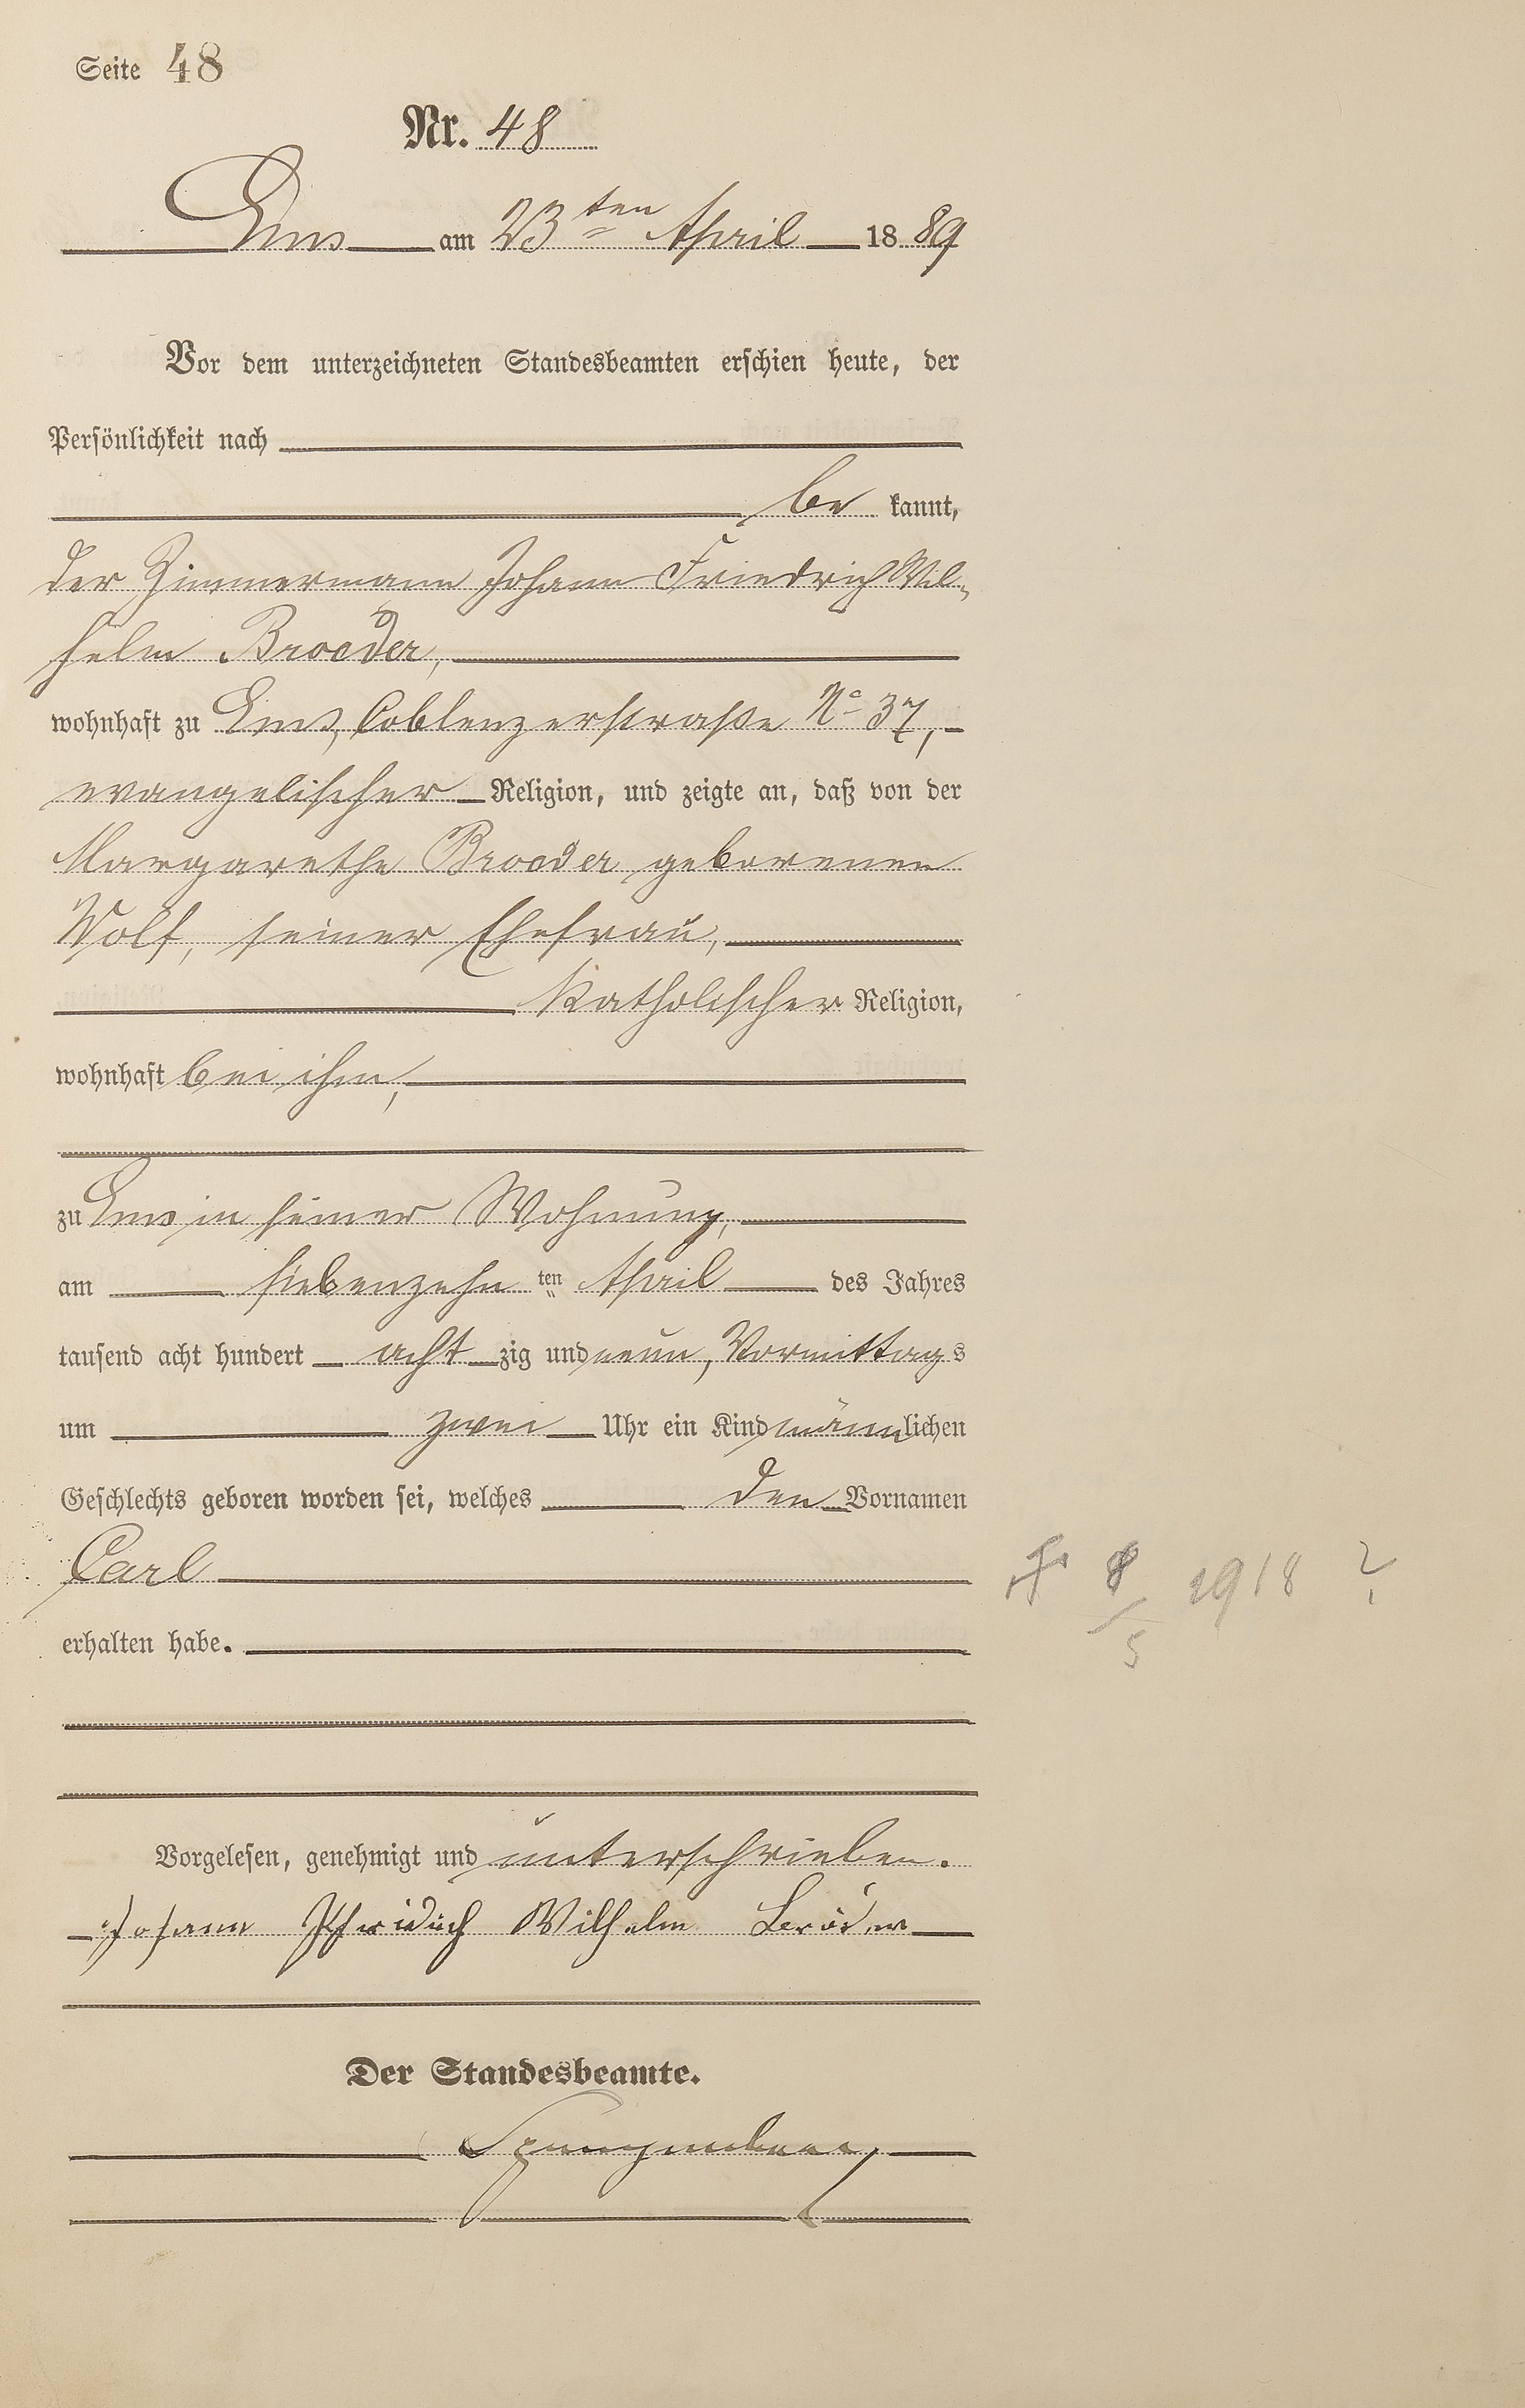 Seite 48
Nr. 48
Ems am 23ten April 1889
Vor dem unterzeichneten Standesbeamten erschien heute, der
Persönlichkeit nach
be kannt,
der Zimmermann Johann Friedrich Wil-
helm Broeder,
wohnhaft zu Ems, Coblenzerstraße No 37,
evangelischer Religion, und zeigte an, daß von der
Margarethe Broeder geborenen
Wolf, seiner Ehefrau,
katholischer Religion,
wohnhaft bei ihm,
zu Ems in seiner Wohnung,
am siebenzehn ten April des Jahres
tausend acht hundert acht zig und neun, Vormittags
um zwei Uhr ein Kind männlichen
Geschlechts geboren worden sei, welches den Vornamen
Carl
† 8/5 1918 ?
erhalten habe.
Vorgelesen, genehmigt und unterschrieben.
Johann Wilhelm Bröder
Der Standesbeamte.
Spangenberg